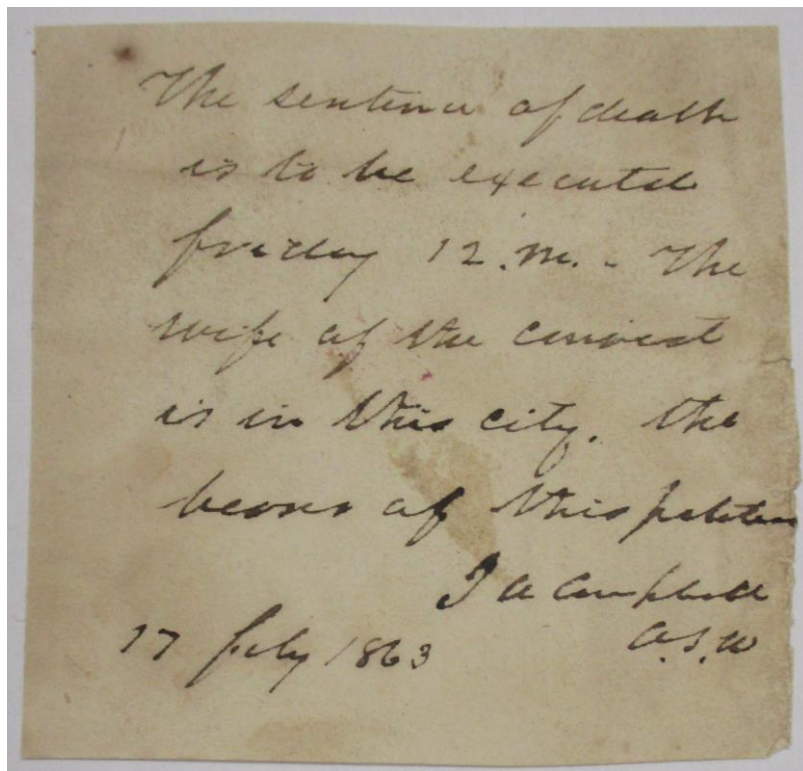 The sentence of death
is to be executed
friday 12. m. - The
wife of the convict
is in this city. the
bearer of this petition
J A Campbell
17 July 1863 A.S.W